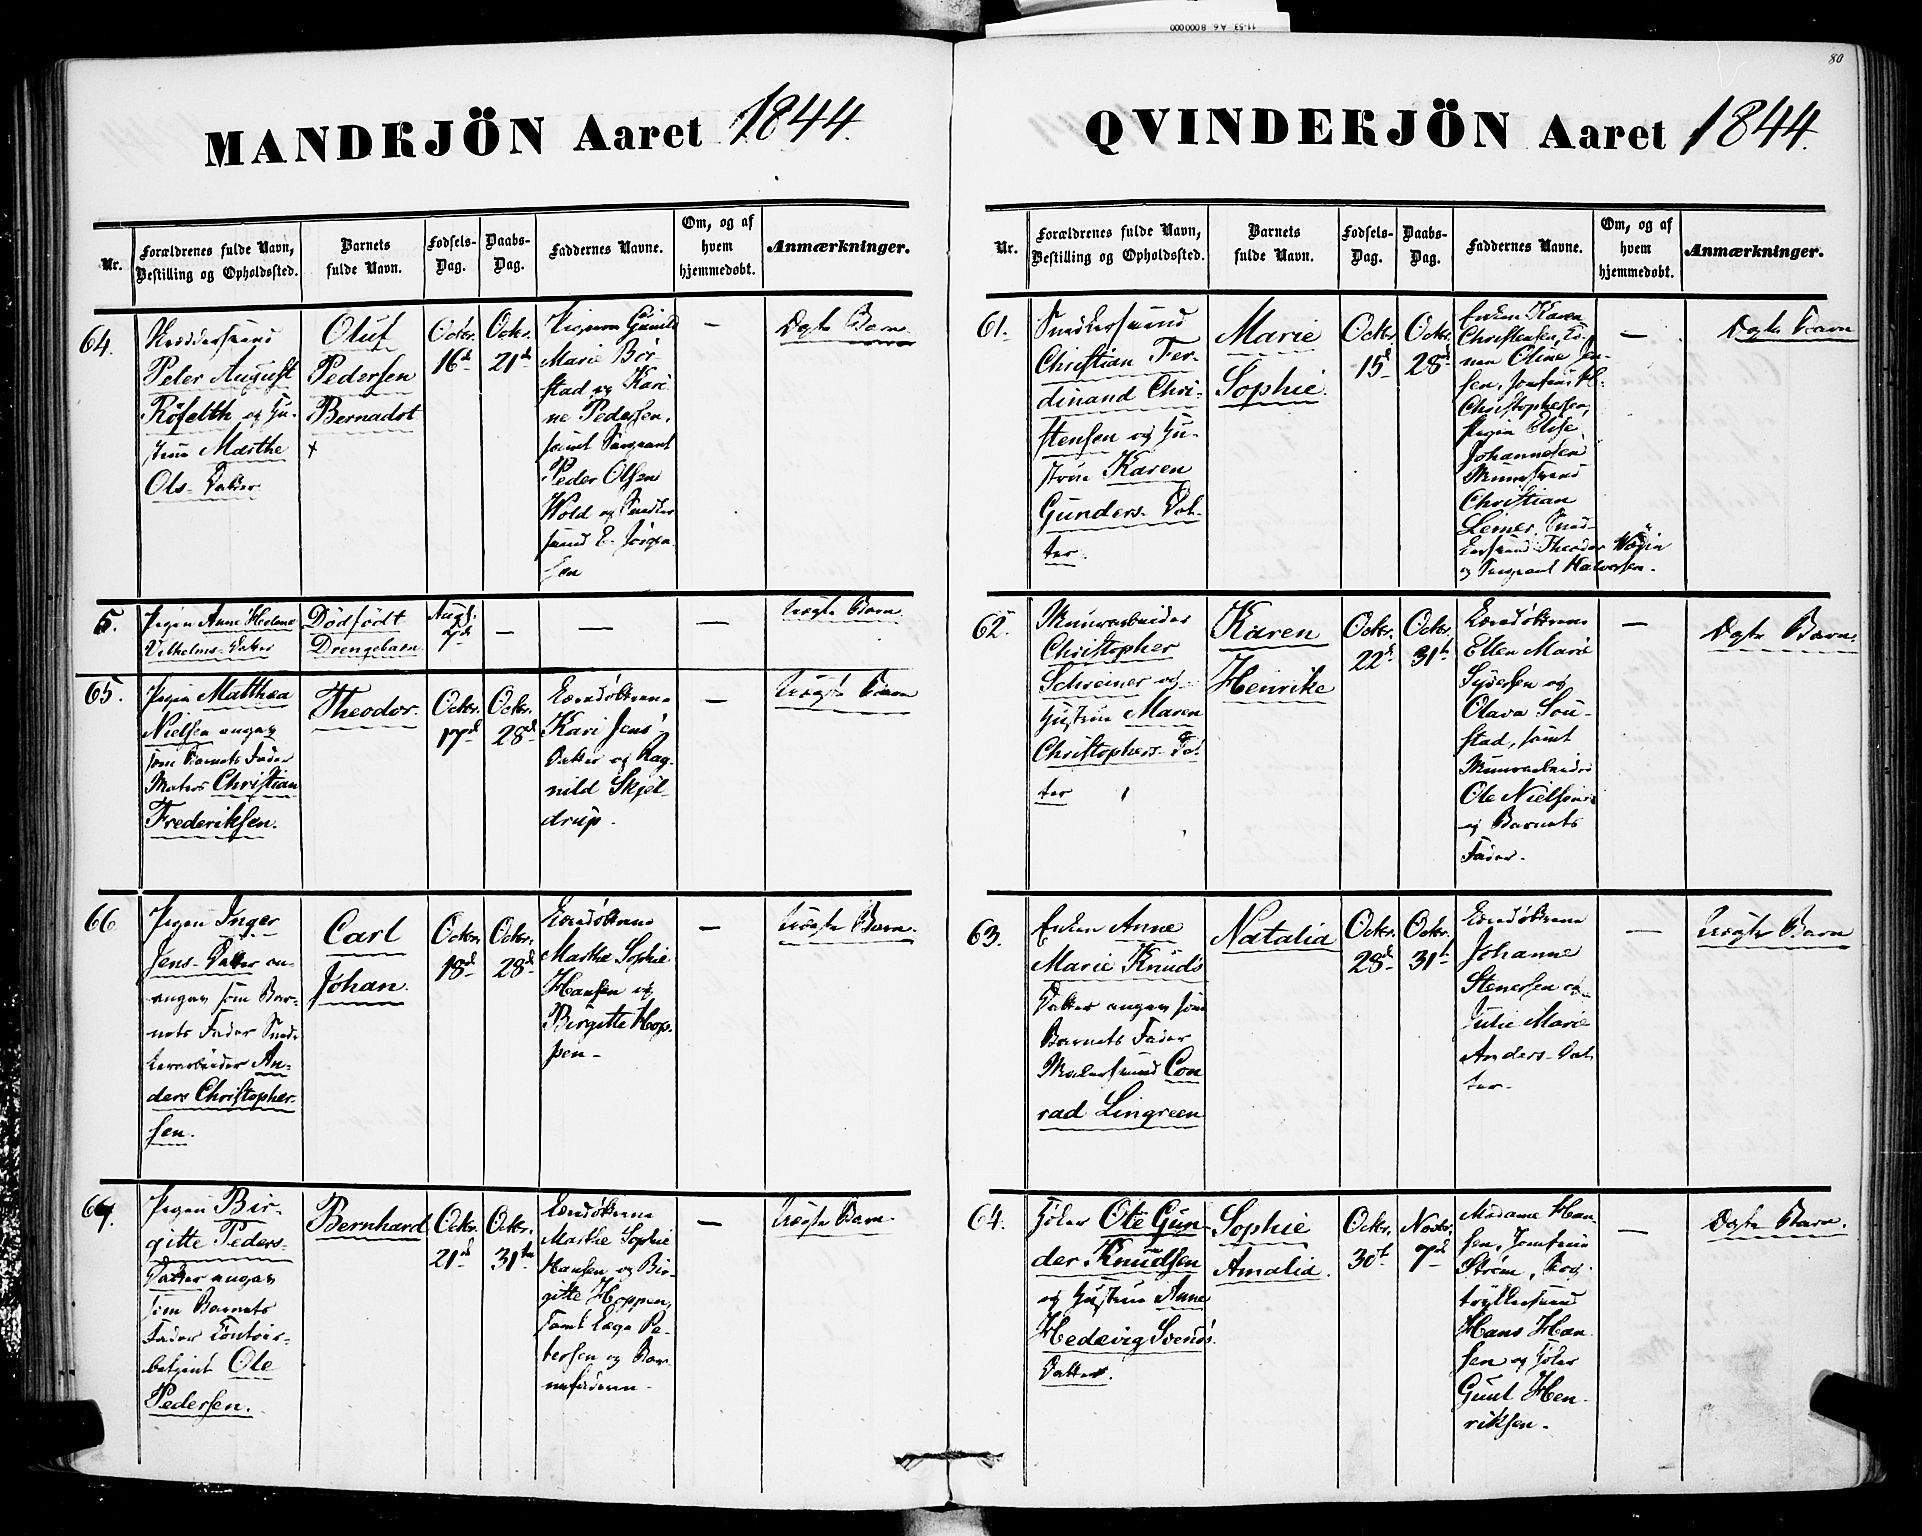 80
MANDKJÖN Aaret 1844.
Nr.
Forældrenes fulde Navn,
Bestilling og Opholdssted.
Barnets
fulde Navn.
Fødsels-
Dag.
Daabs-
Dag.
Faddernes Navne.
Om, og af
hvem
hjemmedøbt.
Anmærkninger.
64.
Peter August
Röfelth og Hu-
strue Marthe
Ols- Datter
Oluf
Pedersen
Bernadot
+
Octbr.
16d
Octbr.
21d
Pigerne Gunild
Marie Bör-
stad og Kari-
ne Pedersen,
samt Sergeant
Peder Olsen
Wold og Snedker
svend E. Jörgen-
sen
—
Ægte Barn
5.
Pigen Anne Helene
Vilhelms- Datter
Dödfödt
Drengebarn
Augst.
7d
—
—
—
Uægte Barn
65.
Pigen Matthea
Nielsen angav
som Barnets Fader
Matros Christian
Frederiksen.
Theodor.
Octbr.
17d
Octbr.
28d
Kari Jens'
Datter og Rag-
nild Skjel-
drup.
—
Uægte Barn
66.
Pigen Inger
Jens- Datter an-
angav som Bar-
nets Fader Sned-
kerarbeider An-
ders Christopher-
sen.
Carl
Johan.
Octbr.
18d
Octbr.
28d
Marthe Sophie
Hansen og
Birgitte Hop-
pen-
—
Uægte Barn.
67.
Pigen Bir-
gitte Peders-
Datter angav
som Barnets
Fader Contoir-
betjent Ole
Pedersen.
Bernhard
Octbr.
21d
Octbr.
31te
Marthe Sophie
Hansen og Bir-
gitte Hoppen,
samt Pe-
tersen og Bar-
nefaderen-
—
Uægte Barn.
QVINDEKJÖN Aaret 1844.
Nr.
Forældrenes fulde Navn,
Bestilling og Opholdssted.
Barnets
fulde Navn.
Fødsels-
Dag.
Daabs-
Dag.
Faddernes Navne.
Om, og af
hvem
hjemmedøbt.
Anmærkninger.
61.
Snedkersvend
Christian Fer-
dinand Chri-
stensen og Hu-
strue Karen
Gunders- Dat-
ter.
Marie
Sophie.
Octbr.
15d
Octbr.
28d
Enken Karen
Christensen, Ko-
nen Oline Jen-
sen, Jomfrue
Christophersen,
Pigen Elise
Johannesen
Muursvend
Christian
Lemer, Sned-
kersvend Theodor Wægin
og Sergeant Halvorsen.
—
Ægte Barn
62.
Muurarbeider
Christopher
Schreiner og
Hustrue Maren
Christophers- Dat-
ter
Karen
Henrike
Octbr.
22d
Octbr.
31te
Ellen Marie
Syversen og
Olava Sou-
stad, samt
Muurarbeider
Ole Nielsen
og Barnets
Fader.
—
Ægte Barn.
63.
Enken Anne
Marie Knuds
Datter angav som
Barnets Fader
Malersvend Con
rad Lingreen
Natalia
Octbr.
28d
Octbr.
31te
Johanne
Stenersen og
Julie Marie
Anders- Dat-
ter.
—
Uægte Barn
64.
Höker Ole Gun
der Knudsen
og Hustrue Anne
Hedevig Svends.
Datter.
Sophie
Amalia.
Octbr.
30te
Novbr.
7d
Madame Han-
sen, Jomfrue
Ström,
Hans Han-
sen og Höker
Guul Hen-
riksen.
—
Ægte Barn.